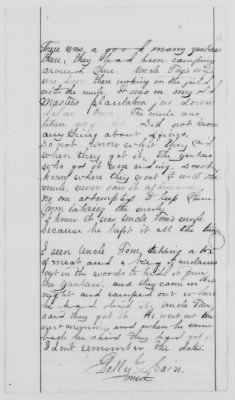 There was a good many yankees
there, they had been camping
around there. Uncle Tom's wife
was down there working in the field
with the mule, it was on my old
Masters plantation, as down
below town. The mule was
taken Did not know
any thing about
Do not know what they said
when they got it. The yankees
who got it were
know where they went to with the
mule, never saw it afterwards,
no one attempted to keep them
from taking the mule.
I know it was Uncle Tom's mule
because he kept it all the time

I seen Uncle Tom, taking a box
of meat and a keg of molasses
out in the woods to hide it from
the yankees, and they came in that
night and camped out where
he had hid it, Uncle Tom
said they got it. He went out the
next morning, and when he came
back he said they had got it
I dont remember the date.
her
mark